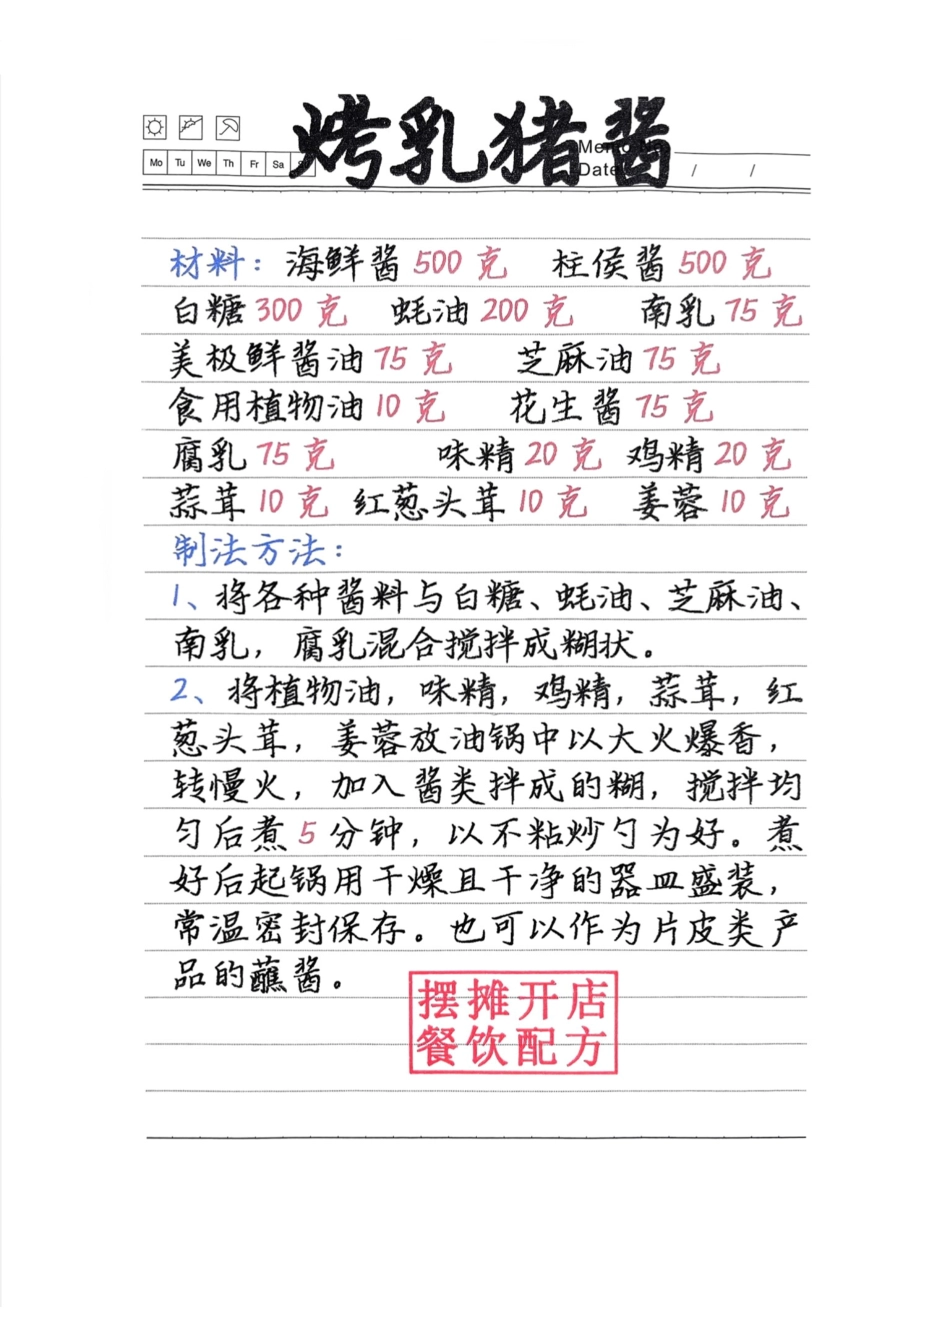 烤乳猪酱
Mo Tu We Th Fr Sa
Date / /
材料：海鲜酱500克 柱侯酱500克
白糖300克 蚝油200克 南乳75克
美极鲜酱油75克 芝麻油75克
食用植物油10克 花生酱75克
腐乳75克 味精20克 鸡精20克
蒜茸10克 红葱头茸10克 姜蓉10克
制法方法：
1、将各种酱料与白糖、蚝油、芝麻油、
南乳，腐乳混合搅拌成糊状。
2、将植物油，味精，鸡精，蒜茸，红
葱头茸，姜蓉放油锅中以大火爆香，
转慢火，加入酱类拌成的糊，搅拌均
匀后煮5分钟，以不粘炒勺为好。煮
好后起锅用干燥且干净的器皿盛装，
常温密封保存。也可以作为片皮类产
品的蘸酱。
摆摊开店
餐饮配方